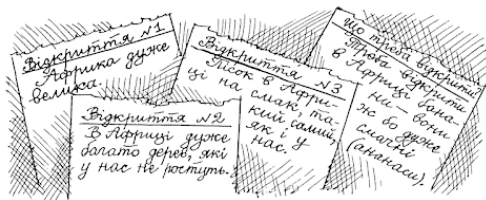 Відкриття №1.
Африка дуже
велика.
Відкриття №2
В Африці дуже
багато дерев, які
у нас не ростуть.
Відкриття №3
Пісок в Афри-
ці на смак, та-
кий самий,
як і у
нас.
Що треба відкрити.
Треба відкрити
в Африці бана-
ни — вони
ж бо дуже
смачні
(ананаси).